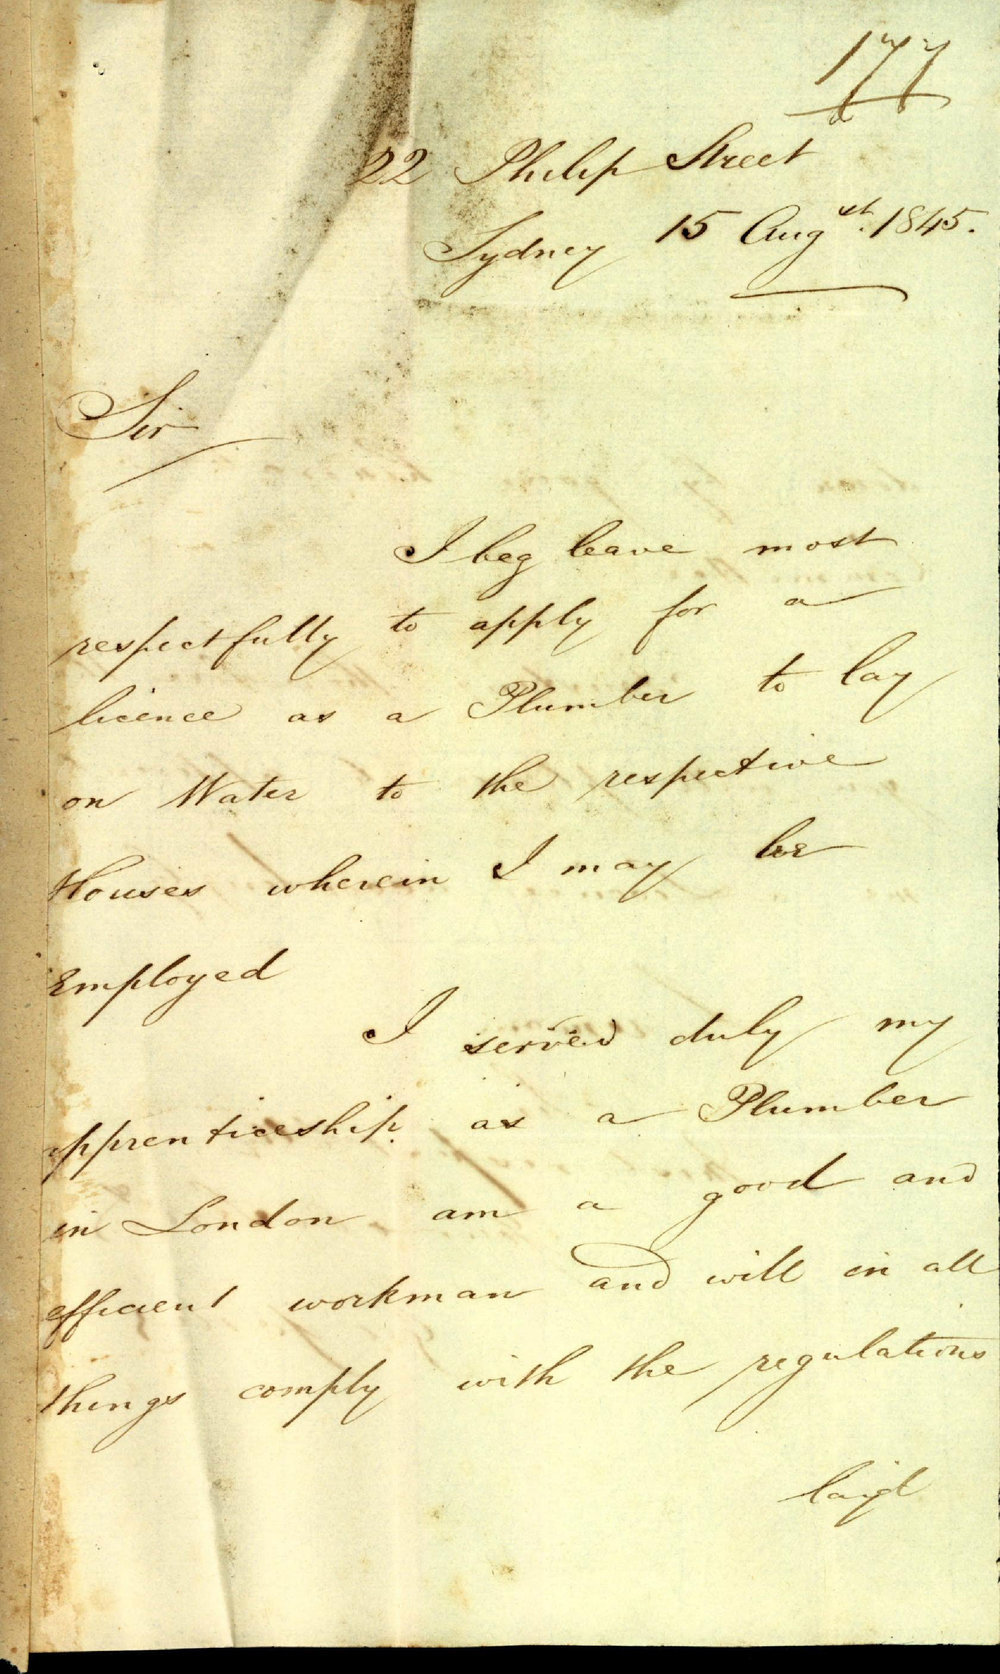 177
22 Philip Street
Sydney 15 Augst. 1845.
Sir
I beg leave most
respectfully to apply for a
licence as a Plumber to lay
on Water to the respective
Houses wherein I may be
Employed
I served duly my
apprenticeship as a Plumber
in London am a good and
efficient workman and will in all
things comply with the regulations
laid